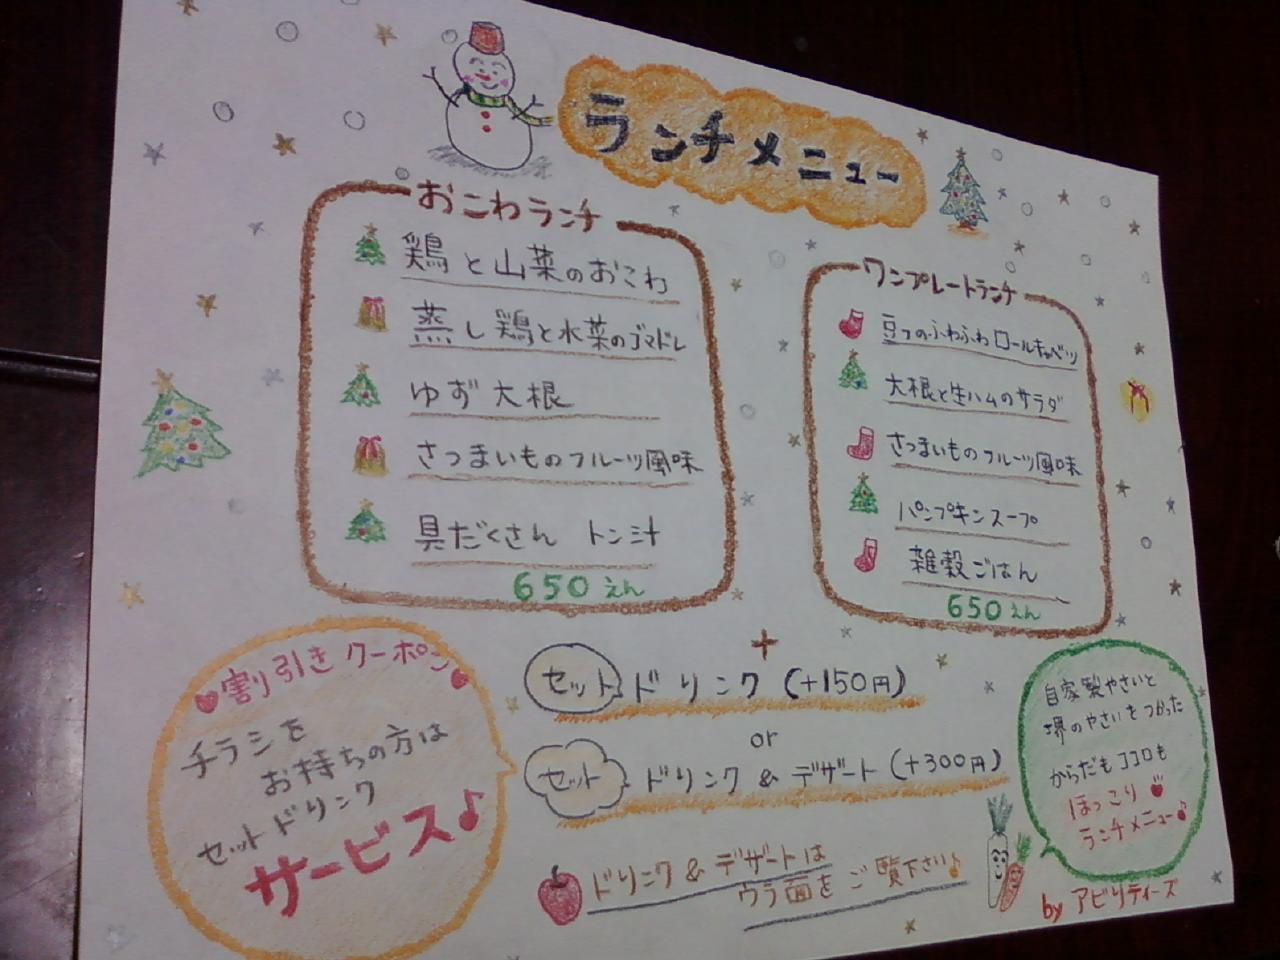 ランチメニュー
おこわランチ
鶏と山菜のおこわ
蒸し鶏と水菜のゴマドレ
ゆず大根
さつまいものフルーツ風味
具だくさん トン汁
650えん
ワンプレートランチ
豆フのふわふわロールキャベツ
大根と生ハムのサラダ
さつまいものフルーツ風味
パンプキンスープ
雑穀ごはん
650えん
+
セット ドリンク (+150円)
or
セット ドリンク & デザート (+300円)
ドリンク & デザートは
ウラ面をご覧下さい♪
割引きクーポン
チラシを
お持ちの方は
セットドリンク
サービス♪
自家製やさいと
堺のやさいをつかった
からだもココロも
ほっこり
ランチメニュー♪
by アビリティーズ